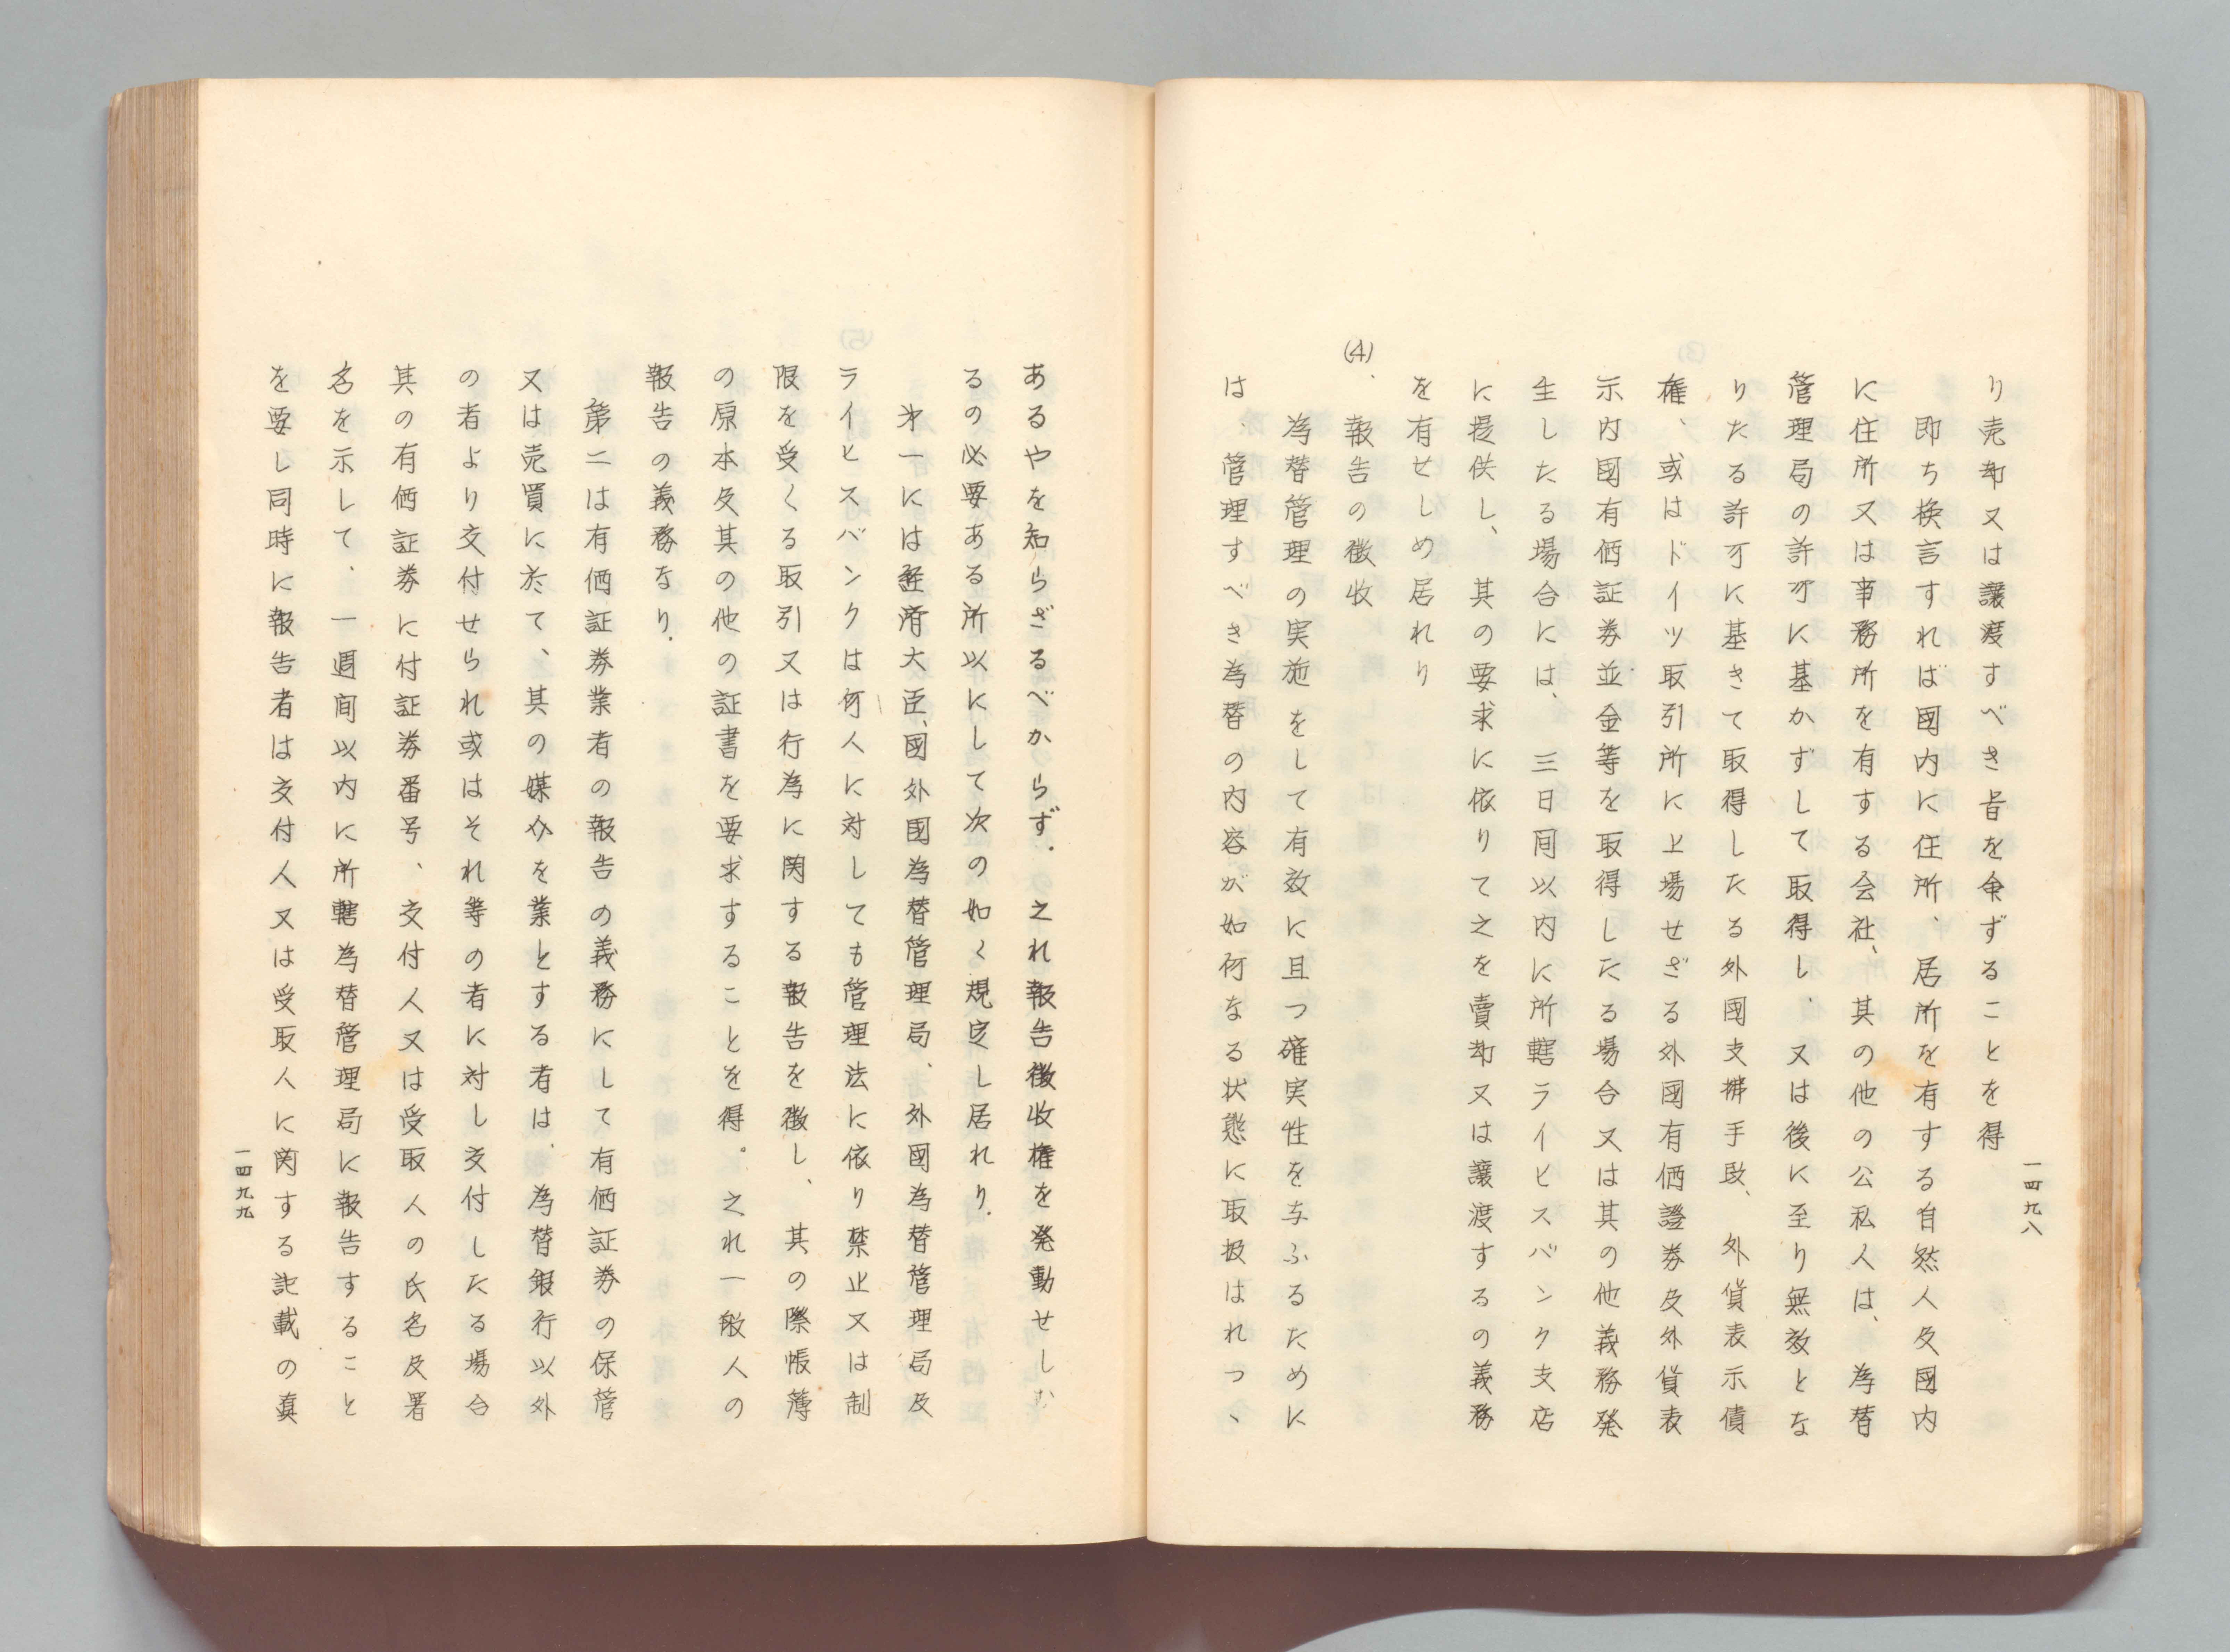 一四九八
り売却又は譲渡すべき旨を命ずることを得
即ち換言すれば國内に住所、居所を有する自然人及國内
に住所又は事務所を有する会社、其の他の公私人は、為替
管理局の許可に基かずして取得し、又は後に至り無效とな
りたる許可に基きて取得したる外國支拂手段、外貨表示債
権、或はドイツ取引所に上場せざる外國有価證券及外貨表
示内國有価証券並金等を取得したる場合又は其の他義務発
生したる場合には、三日间以内に所轄ライヒスバンク支店
に提供し、其の要求に依りて之を賣却又は譲渡するの義務
を有せしめ居れり
(4)、報告の徴收
為替管理の実施をして有效に且つ確実性を与ふるために
は、管理すべき為替の内容が如何なる状態に取扱はれつゝ
あるやを知らざるべからず.之れ報告徴收権を発動せしむ
るの必要ある所以にして次の如く規定し居れり.
才一には経済大臣、國外國為替管理局、外國為替管理局及
ライヒスバンクは何人に対しても管理法に依り禁止又は制
限を受くる取引又は行為に関する報告を徴し、其の際帳簿
の原本及其の他の証書を要求することを得。之れ一般人の
報告の義務なり.
第二は有価証券業者の報告の義務にして有価証券の保管
又は売買に於て、其の媒介を業とする者は、為替銀行以外
の者より交付せられ或はそれ等の者に対し交付したる場合
其の有価証券に付証券番号、交付人又は受取人の氏名及署
名を示して、一週间以内に所轄為替管理局に報告すること
を要し同時に報告者は交付人又は受取人に関する記載の真
一四九九